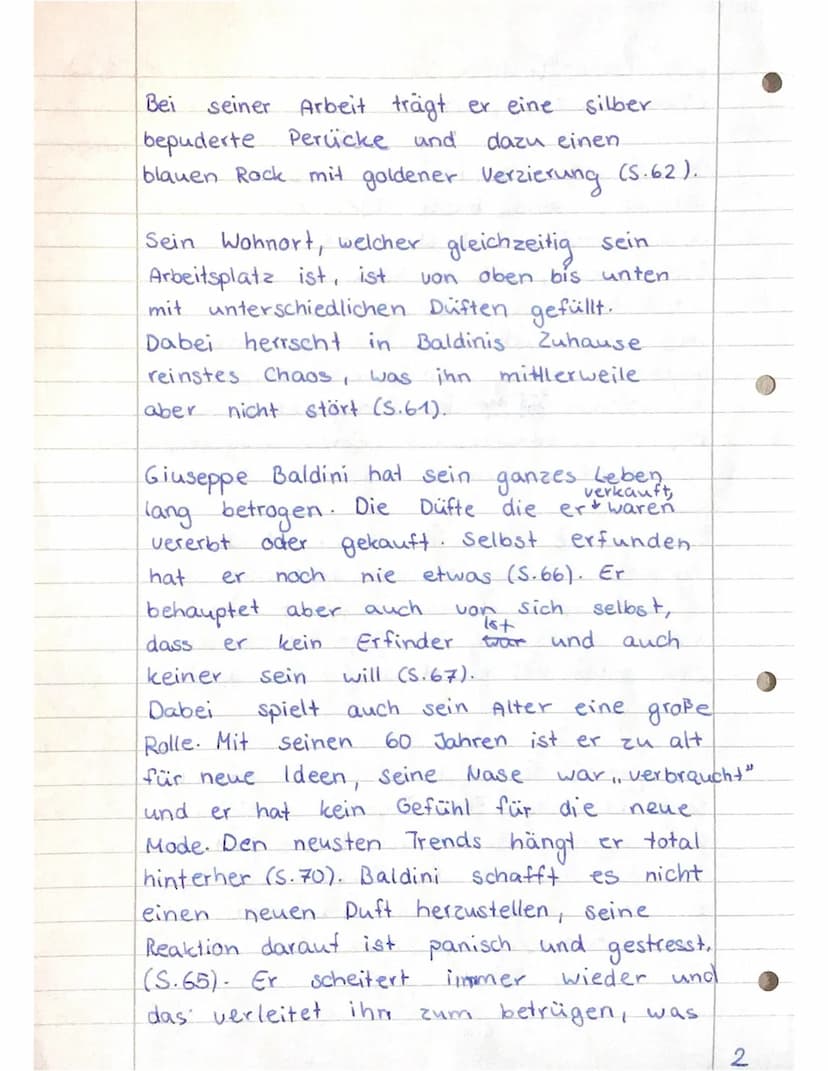 Bei seiner Arbeit trägt er eine silber
bepuderte Perücke und dazu einen
blauen Rock mit goldener Verzierung (S.62).
Sein Wohnort, welcher gleichzeitig sein
Arbeitsplatz ist, ist von oben bis unten
mit unterschiedlichen Düften gefüllt.
Dabei herrscht in Baldinis Zuhause
reinstes Chaos, was ihn mittlerweile
aber nicht stört (S.61).
Giuseppe Baldini hat sein ganzes Leben
lang betrogen. Die Düfte die er verkauft, waren
vererbt oder gekauft. Selbst erfunden
hat er noch nie etwas (S.66). Er
behauptet aber auch von sich selbst,
dass er kein Erfinder ist und auch
keiner sein will (S.67).
Dabei spielt auch sein Alter eine große
Rolle. Mit seinen 60 Jahren ist er zu alt
für neue Ideen, seine Nase war „verbraucht"
und er hat kein Gefühl für die neue
Mode. Den neusten Trends hängt er total
hinterher (S.70). Baldini schafft es nicht
einen neuen Duft herzustellen, seine
Reaktion darauf ist panisch und gestresst.
(S.65). Er scheitert immer wieder und
das verleitet ihn zum betrügen, was
2